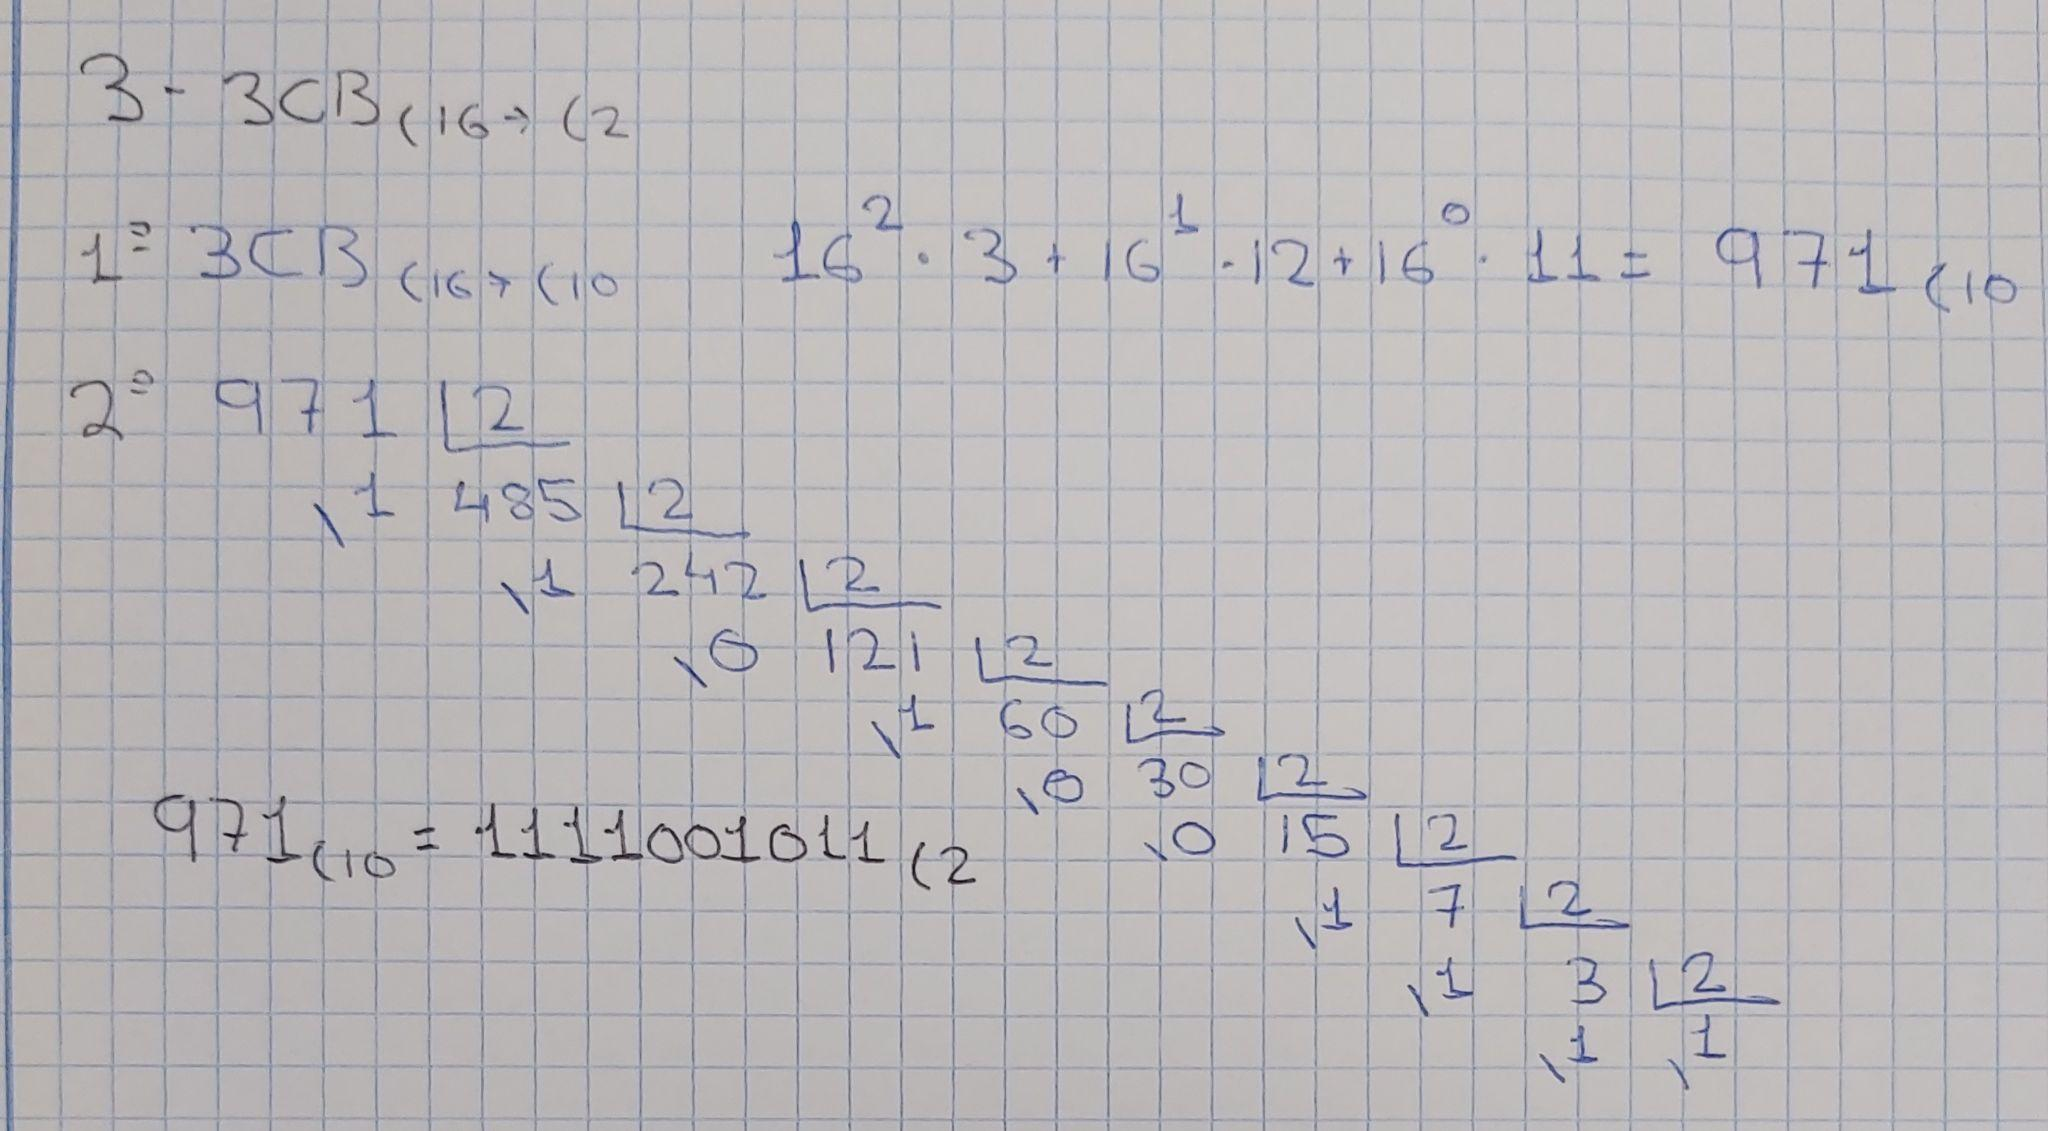 3 - 3CB(16→(2
1º 3CB(16→(10 16² · 3 + 16¹ · 12 + 16⁰ · 11 = 971(10
2º 971 |2
1 485 |2
1 242 |2
0 121 |2
1 60 |2
0 30 |2
0 15 |2
971(10 = 1111001011(2
1 7 |2
1 3 |2
1 1